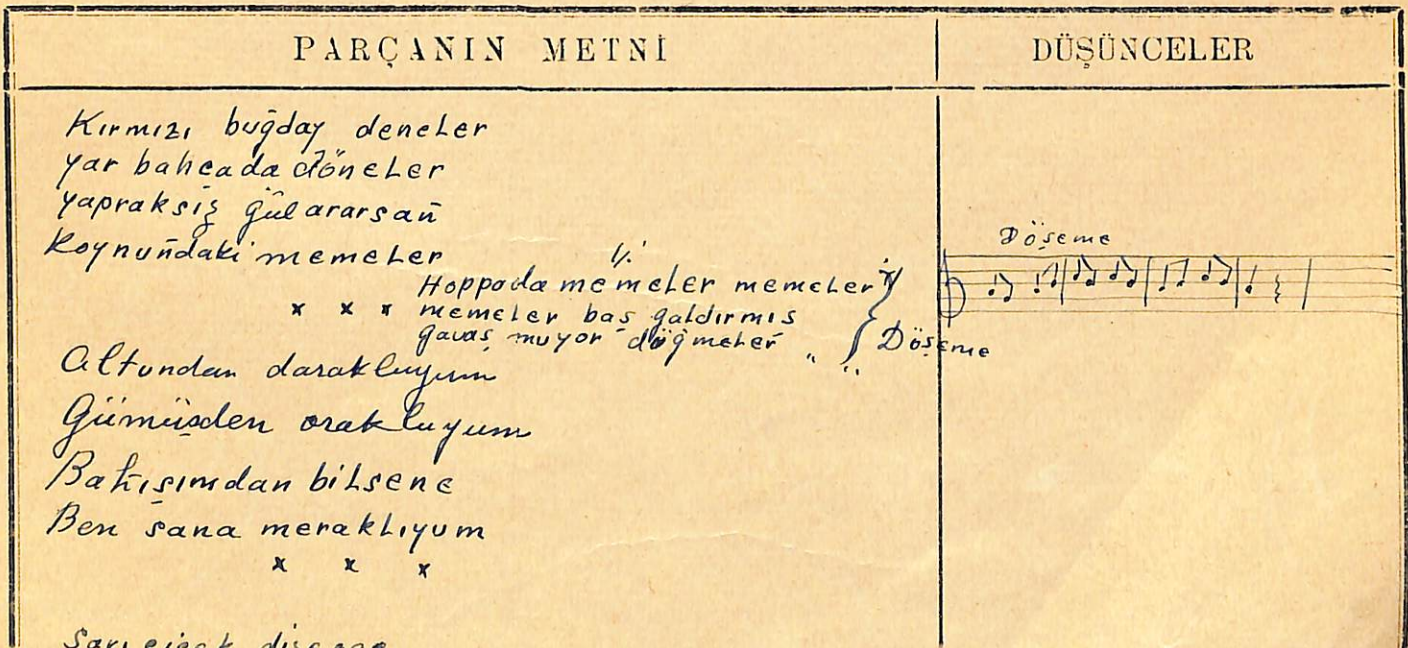 PARÇANIN METNİ
DÜŞÜNCELER
Kırmızı buğday deneler
yar bahcada döneler
yapraksız gül ararsañ
Koynuñdaki memeler
Hoppada memeler memeler
x x x memeler baş galdırmış
gavaş muyor döğmeler " "
Döşeme
Döşeme
Altundan darakluyum
Gümüşden orakluyum
Bakışımdan bilsene
Ben sana meraklıyum
x x x
Sarı çiçek